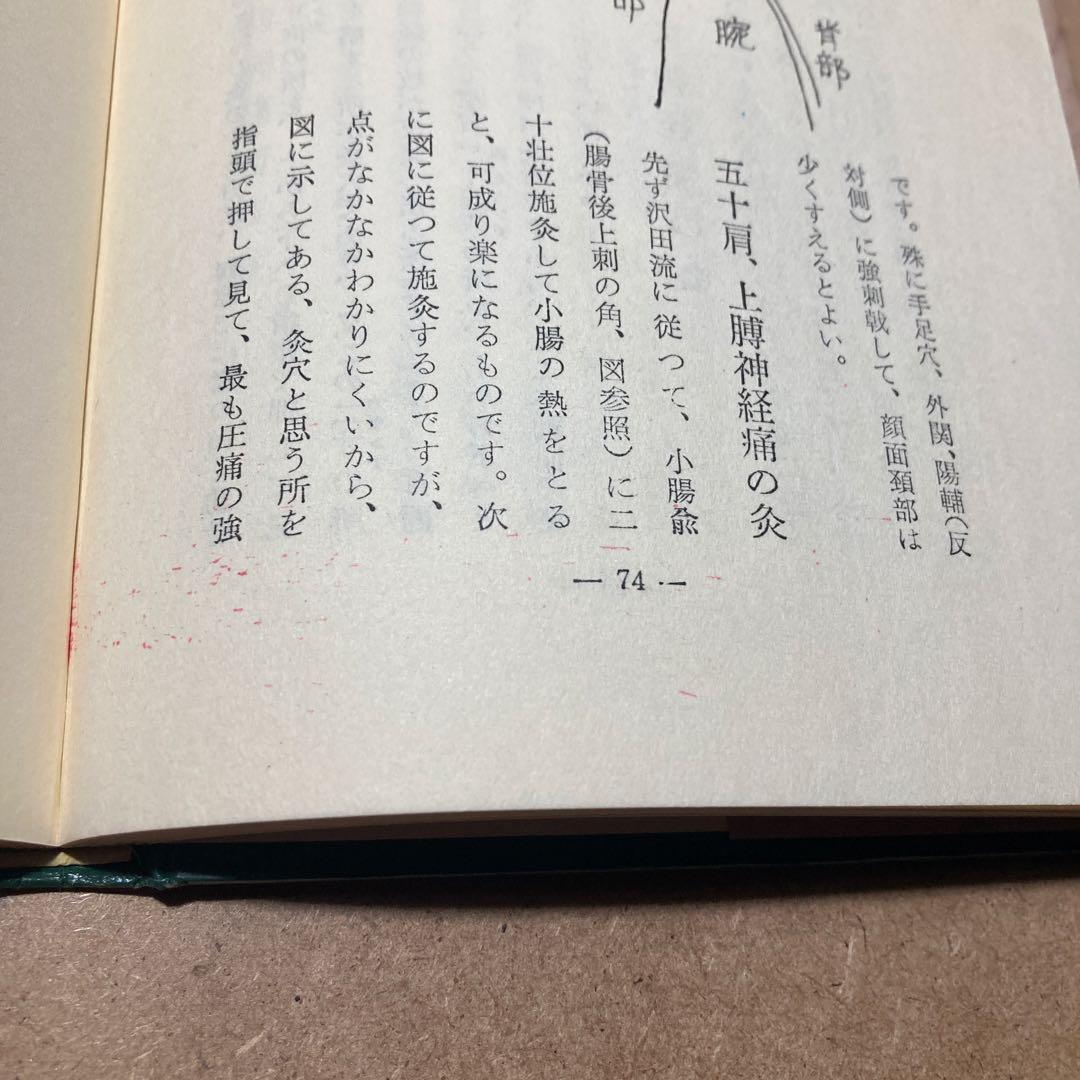 腕
背部
です。殊に手足穴、外関、陽輔（反
対側）に強刺戟して、顔面頚部は
少くすえるとよい。
五十肩、上膊神経痛の灸
先ず沢田流に従つて、小腸兪
（腸骨後上刺の角、図参照）に二
十壮位施灸して小腸の熱をとる
と、可成り楽になるものです。次
に図に従つて施灸するのですが、
点がなかなかわかりにくいから、
図に示してある、灸穴と思う所を
指頭で押して見て、最も圧痛の強
— 74 —